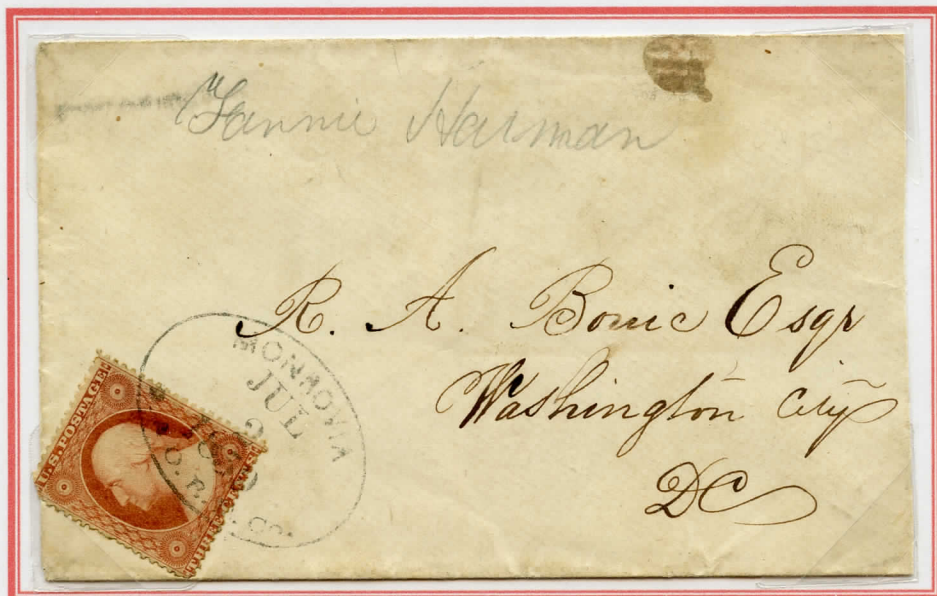 Fannie Harman
R. A. Bowie Esqr
Washington City
DC
MONROVIA
JUL
2
U.S. POSTAGE
THREE CENTS